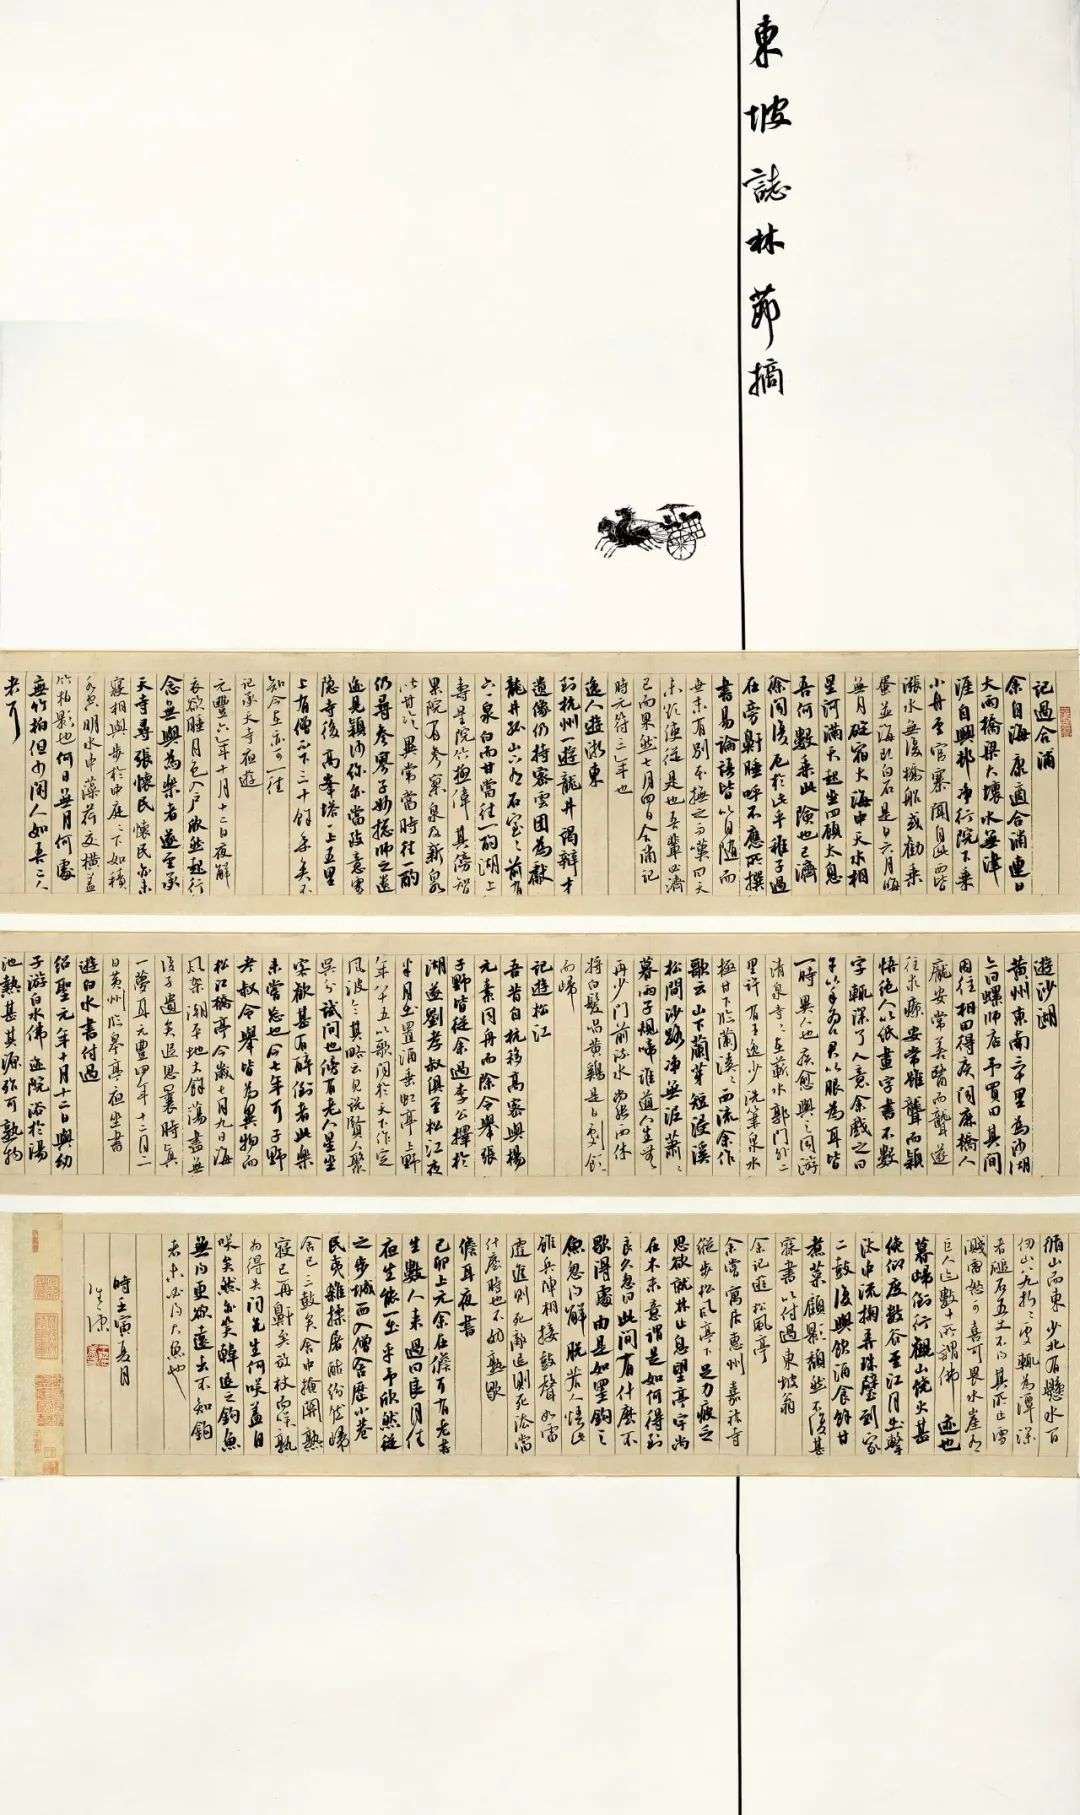 東坡誌林節摘
記過合浦
余自海康適合浦連日
大雨橋梁大壞水無津
涯自興郡淨行院下乘
小舟至官寨聞自此西皆
漲水無復橋船或勸乘
蜑並海即白石是日六月晦
無月碇宿大海中天水相
星河滿天起坐四顧太息
吾何數乘此險也已濟
徐聞復厄於此乎稚子過
在旁鼾睡呼不應所撰
書易論語皆以自隨而
世未有別本撫之而嘆曰天
未欲使從是也吾輩必濟
已而果然七月四日合浦記
時元符三年也
逸人遊浙東
到杭州一遊龍井謁辯才
遺像仍持密雲團為獻
龍井孤山下有石室々前有
六一泉白而甘當往一酌湖上
壽星院竹極偉其傍智
果院有參寥泉及新泉
皆甘冷異常當時往一酌
仍尋參寥子妙總師之遺
迹見穎沙彌亦當致意靈
隱寺後高峯塔一上五里
上有僧不下三十餘年矣不
知今在亦可一往
記承天寺夜遊
元豐六年十月十二日夜解
衣欲睡月色入戶欣然起行
念無與為樂者遂至承
天寺尋張懷民懷民亦未
寢相與步於中庭々下如積
水空明水中藻荇交橫蓋
竹柏影也何日無月何處
無竹柏但少閑人如吾二人
者耳
遊沙湖
黃州東南三十里為沙湖
亦曰螺師店予買田其間
因往相田得疾聞麻橋人
龐安常善醫而聾遂
往求療安常雖聾而穎
悟絕人以紙畫字書不數
字輒深了人意余戲之曰
予以手為口君以眼為耳皆
一時異人也疾愈與之同游
清泉寺々在蘄水郭門外二
里許有王逸少洗筆泉水
極甘下臨蘭溪々西流余作
歌云山下蘭芽短浸溪
松間沙路净無泥蕭々
暮雨子規啼誰道人生無
再少門前流水尚能西休
將白髮唱黃鷄是日劇飲
而歸
記遊松江
吾昔自杭移高密與楊
元素同舟而陳令舉張
子野皆從余過李公擇於
湖遂劉孝叔俱至松江夜
半月出置酒垂虹亭上野
年八十五以歌聞於天下作定
風波令其略云見說賢人聚
吳分試問也傍有老人星坐
客歡甚有醉倒者此樂
未嘗忘也今七年耳子野
孝叔令舉皆為異物而
松江橋亭今歲七月九日海
風架潮平地丈餘蕩盡無
復孑遺矣追思曩時真
一夢耳元豐四年十二月二
日黃州臨皋亭夜坐書
遊白水書付過
紹聖元年十月十二日與幼
子游白水佛迹院浴於湯
池熱甚其源殆可熟物
循山而東少北有懸水百
仞山八九折々處輒為潭深
者磓石五丈不得其所止雪
濺雷怒可喜可畏水崖有
巨人迹數十所謂佛迹也
暮歸倒行觀山燒火甚
俛仰度數谷至江月出擊
汰中流掬弄珠璧到家
二鼓復與飲酒食餘甘
煮菜顧影頹然不復甚
寐書以付過東坡翁
余記遊松風亭
余嘗寓居惠州嘉祐寺
縱步松風亭下足力疲乏
思欲就林止息望亭宇尚
在木末意謂是如何得到
良久忽曰此間有什麼不
歇得處由是如罣鈎之
魚忽得解脫若人悟此
雖兵陣相接鼓聲如雷
霆進則死敵退則死法當
什麼時也不妨熟歇
儋耳夜書
己卯上元余在儋耳有老書
生數人來過曰良月佳
夜先生能一出乎予欣然從
之步城西入僧舍歷小巷
民夷雜揉屠酤紛然歸
舍已三鼓矣舍中掩關熟
寢已再鼾矣放杖而笑孰
為得失問先生何笑蓋自
笑矣然亦笑韓退之釣魚
無得更欲遠去不知釣
者未必得大魚也
時壬寅夏月